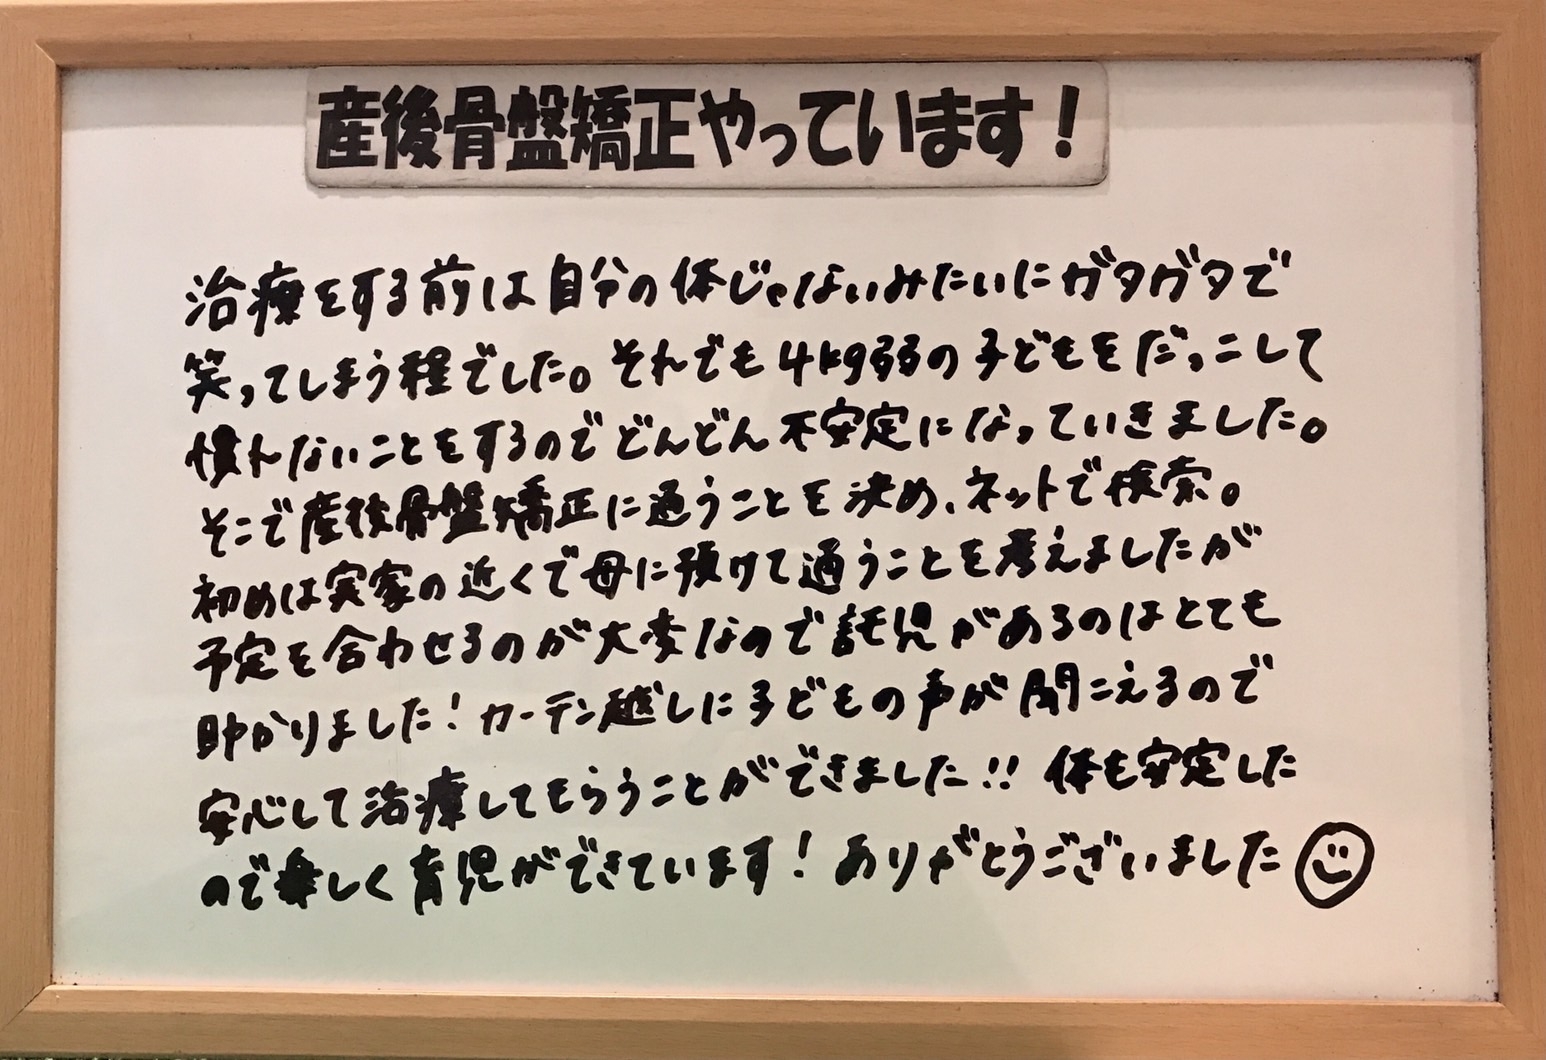 産後骨盤矯正やっています！
治療をする前は自分の体じゃないみたいにガタガタで
笑ってしまう程でした。それでも4kg弱の子どもをだっこして
慣れないことをするのでどんどん不安定になっていきました。
そこで産後骨盤矯正に通うことを決め、ネットで検索。
初めは実家の近くで母に預けて通うことを考えましたが
予定を合わせるのが大変なので託児があるのはとても
助かりました！カーテン越しに子どもの声が聞こえるので
安心して治療してもらうことができました!! 体も安定した
ので楽しく育児ができています！ありがとうございました